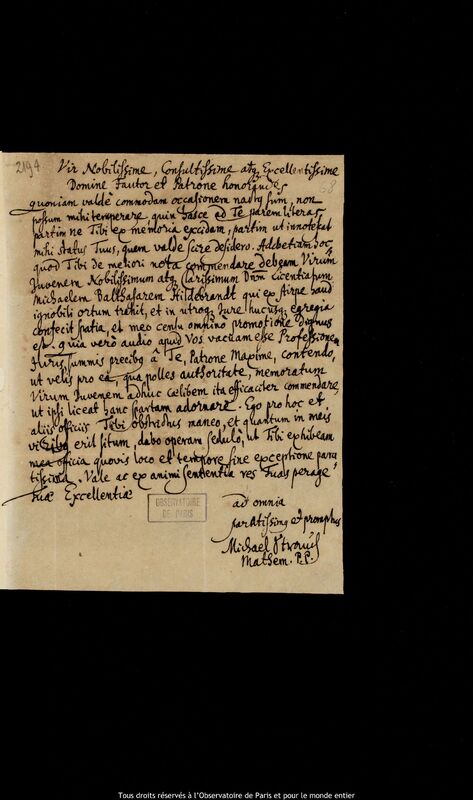 2194
68
Vir Nobilissime, Consultissime atq; Excellentissime
Domine Fautor et Patrone honorande,
quoniam valde commodam occasionem nactus sum, non
possum mihi temperare, quin hasce ad Te darem literas,
partim ne Tibi ex memoria excidam, partim ut innotescat
mihi status Tuus, quem valde scire desidero. Ad hoc,
quod Tibi de meliori nota commendare debeam Virum
Juvenem Nobilissimum atq; Clarissimum Dnm Licentiatum
Michaelem Balthasarem Hildebrandt qui ex stirpe haud
ignobili ortum trahit, et in utroq; Jure hucusq; egregia
confecit spatia, et meo censu omnino promotione dignus
est. quia vero audio apud Vos vacuam esse Professionem
Juris, summis precibq à Te, Patrone Maxime, contendo,
ut velis pro ea, qua polles authoritate, memoratum
Virum Juvenem adhuc coelibem ita efficaciter commendare,
ut ipsi liceat hanc spartam adornare. Ego pro hoc et
aliis officiis Tibi obstrictus maneo, et quantum in meis
viribq erit situm, dabo operam sedulo, ut Tibi exhibeam
mea officia quovis loco et tempore sine exceptione para
tissima. Vale ac ex animi sententia res Tuas perage
Tuae Excellentiae
ad omnia
paratissimq et promptus
Michael Strauch
Mathem. P.P.
OBSERVATOIRE
DE PARIS
Tous droits réservés à l'Observatoire de Paris et pour le monde entier